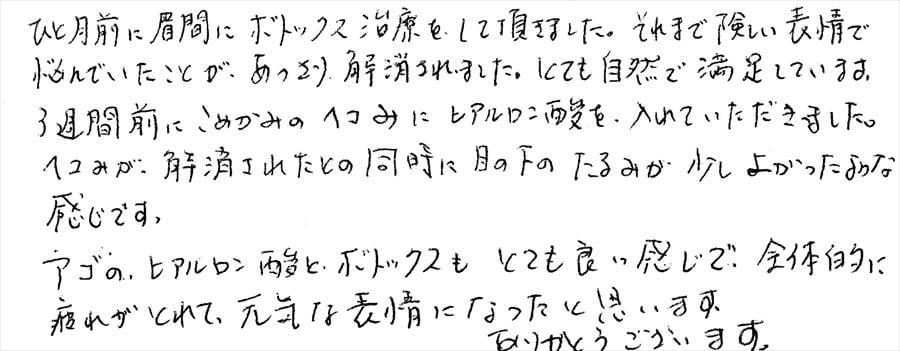 ひと月前に眉間にボトックス治療をして頂きました。それまで険しい表情で
悩んでいたことが、あっさり解消されました。とても自然で満足しています。
3週間前にこめかみのヘコみにヒアルロン酸を入れていただきました。
ヘコみが、解消されたとの同時に目の下のたるみが少しよかったような
感じです。
アゴの、ヒアルロン酸と、ボトックスもとても良い感じで、全体的に
疲れがとれて、元気な表情になったと思います。
ありがとうございます。